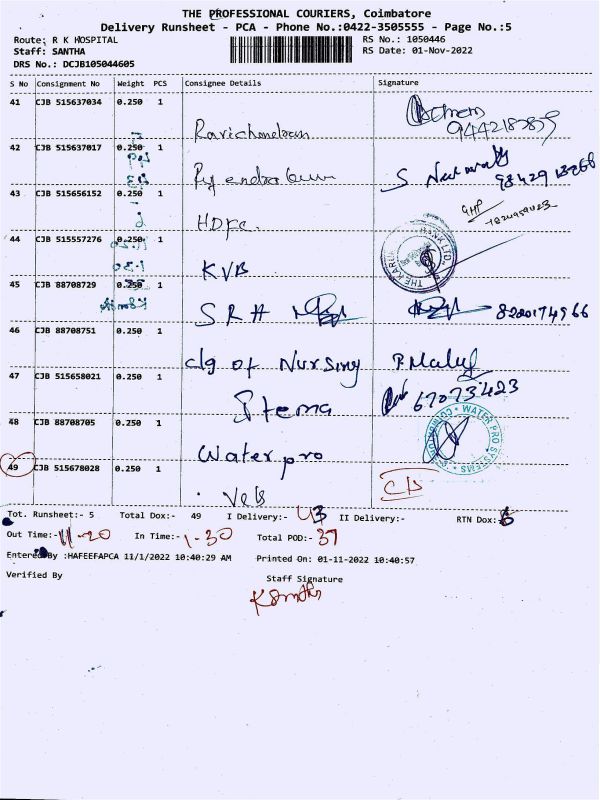 THE PROFESSIONAL COURIERS, Coimbatore
Delivery Runsheet - PCA - Phone No.:0422-3505555 - Page No.:5
Route: R K HOSPITAL RS No.: 1050446
Staff: SANTHA RS Date: 01-Nov-2022
DRS No.: DCJB105044605
S No Consignment No Weight PCS Consignee Details Signature
41 CJB 515637034 0.250 1 Ravichandran
42 CJB 515637017 0.250 1
43 CJB 515656152 0.250 1 HDFC.
44 CJB 515557276 0.250 1 KVB
45 CJB 88708729 0.250 1 SRH 8220174966
46 CJB 88708751 0.250 1 clg of Nursing
47 CJB 515658021 0.250 1 67073423
48 CJB 88708705 0.250 1 Water pro WATER PRO SYSTEMS
49 CJB 515678028 0.250 1
Tot. Runsheet:- 5 Total Dox:- 49 I Delivery:- 43 II Delivery:- RTN Dox:-
Out Time:- 11-20 In Time:- 1-30 Total POD:- 37
Entered By :HAFEEFAPCA 11/1/2022 10:40:29 AM Printed On: 01-11-2022 10:40:57
Verified By Staff Signature